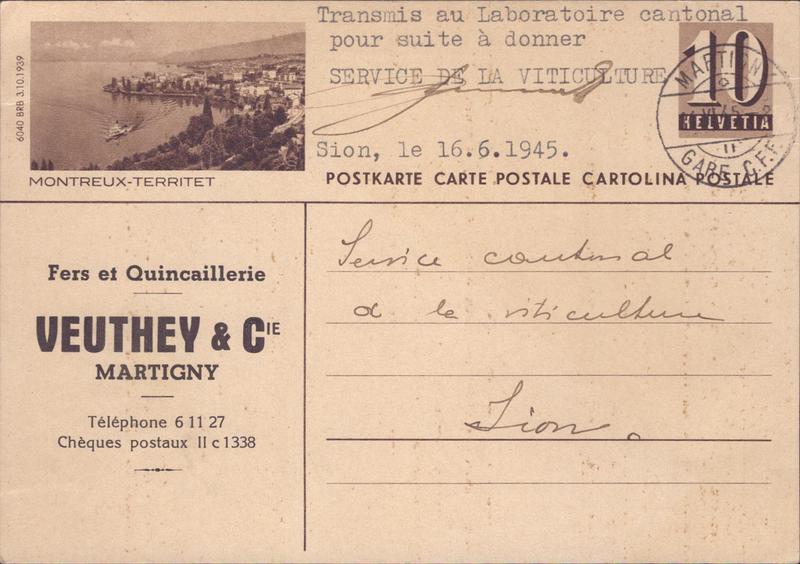 6040 BRB 3.10.1939
MONTREUX-TERRITET
Transmis au Laboratoire cantonal
pour suite à donner
SERVICE DE LA VITICULTURE
Sion, le 16.6.1945.
10
HELVETIA
MARTIGNY
GARE C.F.F.
POSTKARTE CARTE POSTALE CARTOLINA POSTALE
Fers et Quincaillerie
VEUTHEY & CIE
MARTIGNY
Téléphone 6 11 27
Chèques postaux II c 1338
Service cantonal
d la viticulture
Sion.